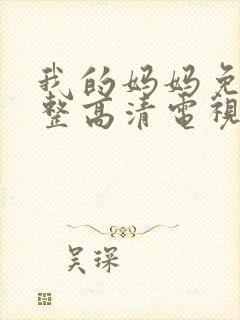 我的妈妈免
整高清電視
吴琛